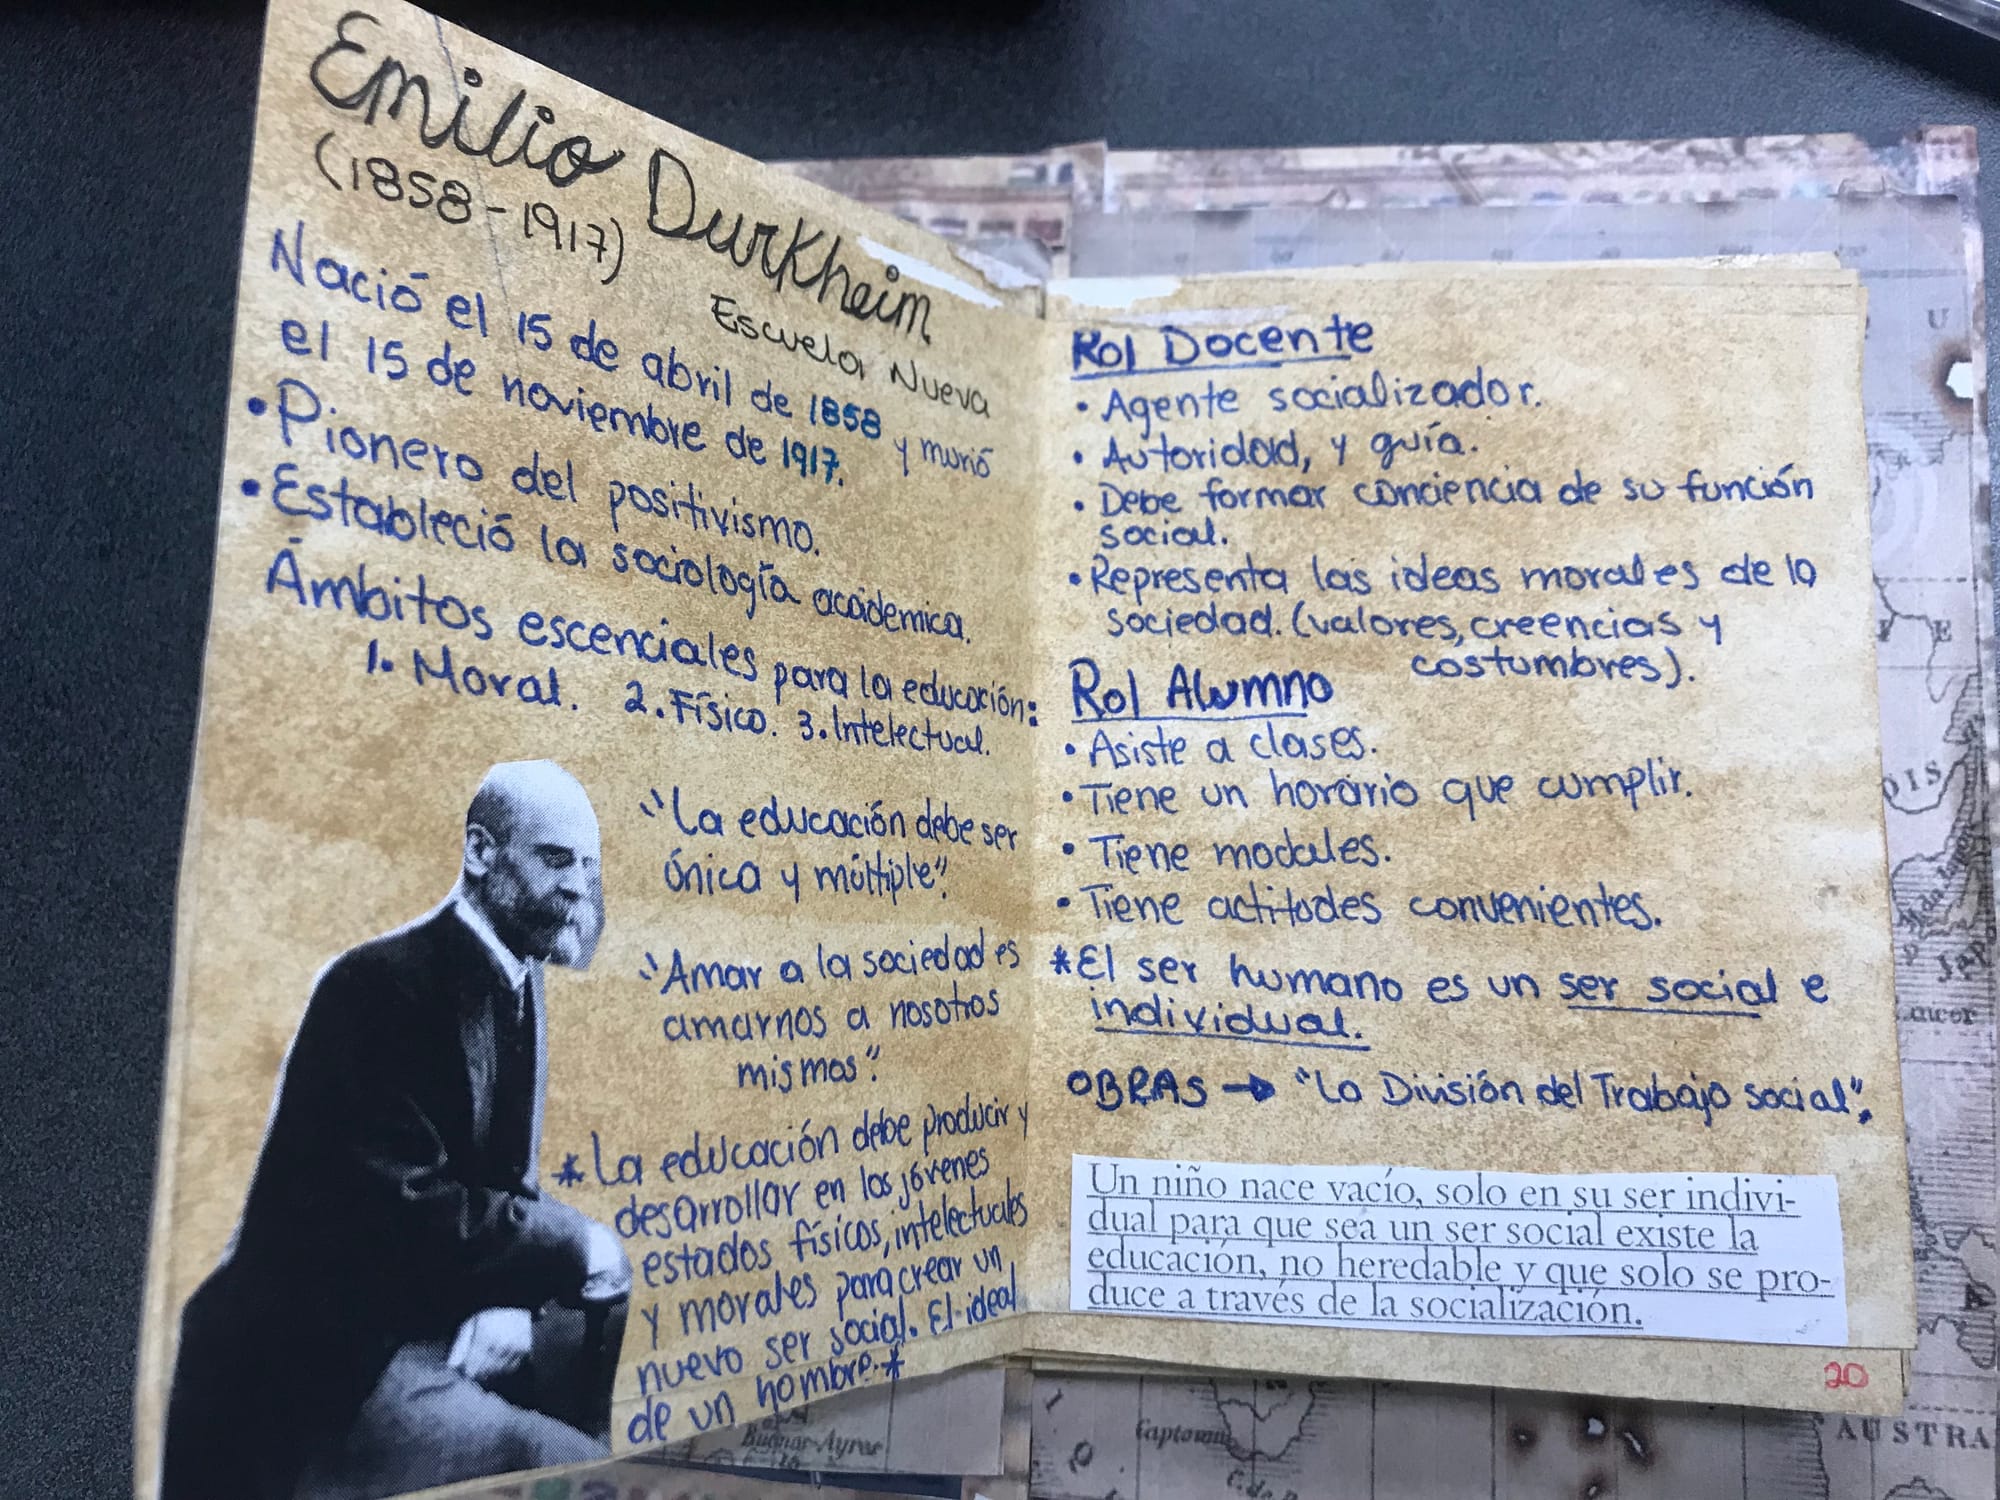 Emilio Durkheim
(1858-1917)
Escuela Nueva
Nació el 15 de abril de 1858 y murió
el 15 de noviembre de 1917.
• Pionero del positivismo.
• Estableció la sociología académica.
Ámbitos escenciales para la educación:
1. Moral. 2. Físico. 3. Intelectual.
"La educación debe ser
única y múltiple".
"Amar a la sociedad es
amarnos a nosotros
mismos".
*La educación debe producir y
desarrollar en los jóvenes
estados físicos, intelectuales
y morales para crear un
nuevo ser social. El ideal
de un hombre.*
Rol Docente
• Agente socializador.
• Autoridad, y guía.
• Debe formar conciencia de su función
social.
• Representa las ideas morales de la
sociedad. (valores, creencias y
costumbres).
Rol Alumno
• Asiste a clases.
• Tiene un horario que cumplir.
• Tiene modales.
• Tiene actitudes convenientes.
*El ser humano es un ser social e
individual.
OBRAS → "La División del Trabajo social".
Un niño nace vacío, solo en su ser indivi-
dual para que sea un ser social existe la
educación, no heredable y que solo se pro-
duce a través de la socialización.
20
AUSTRA